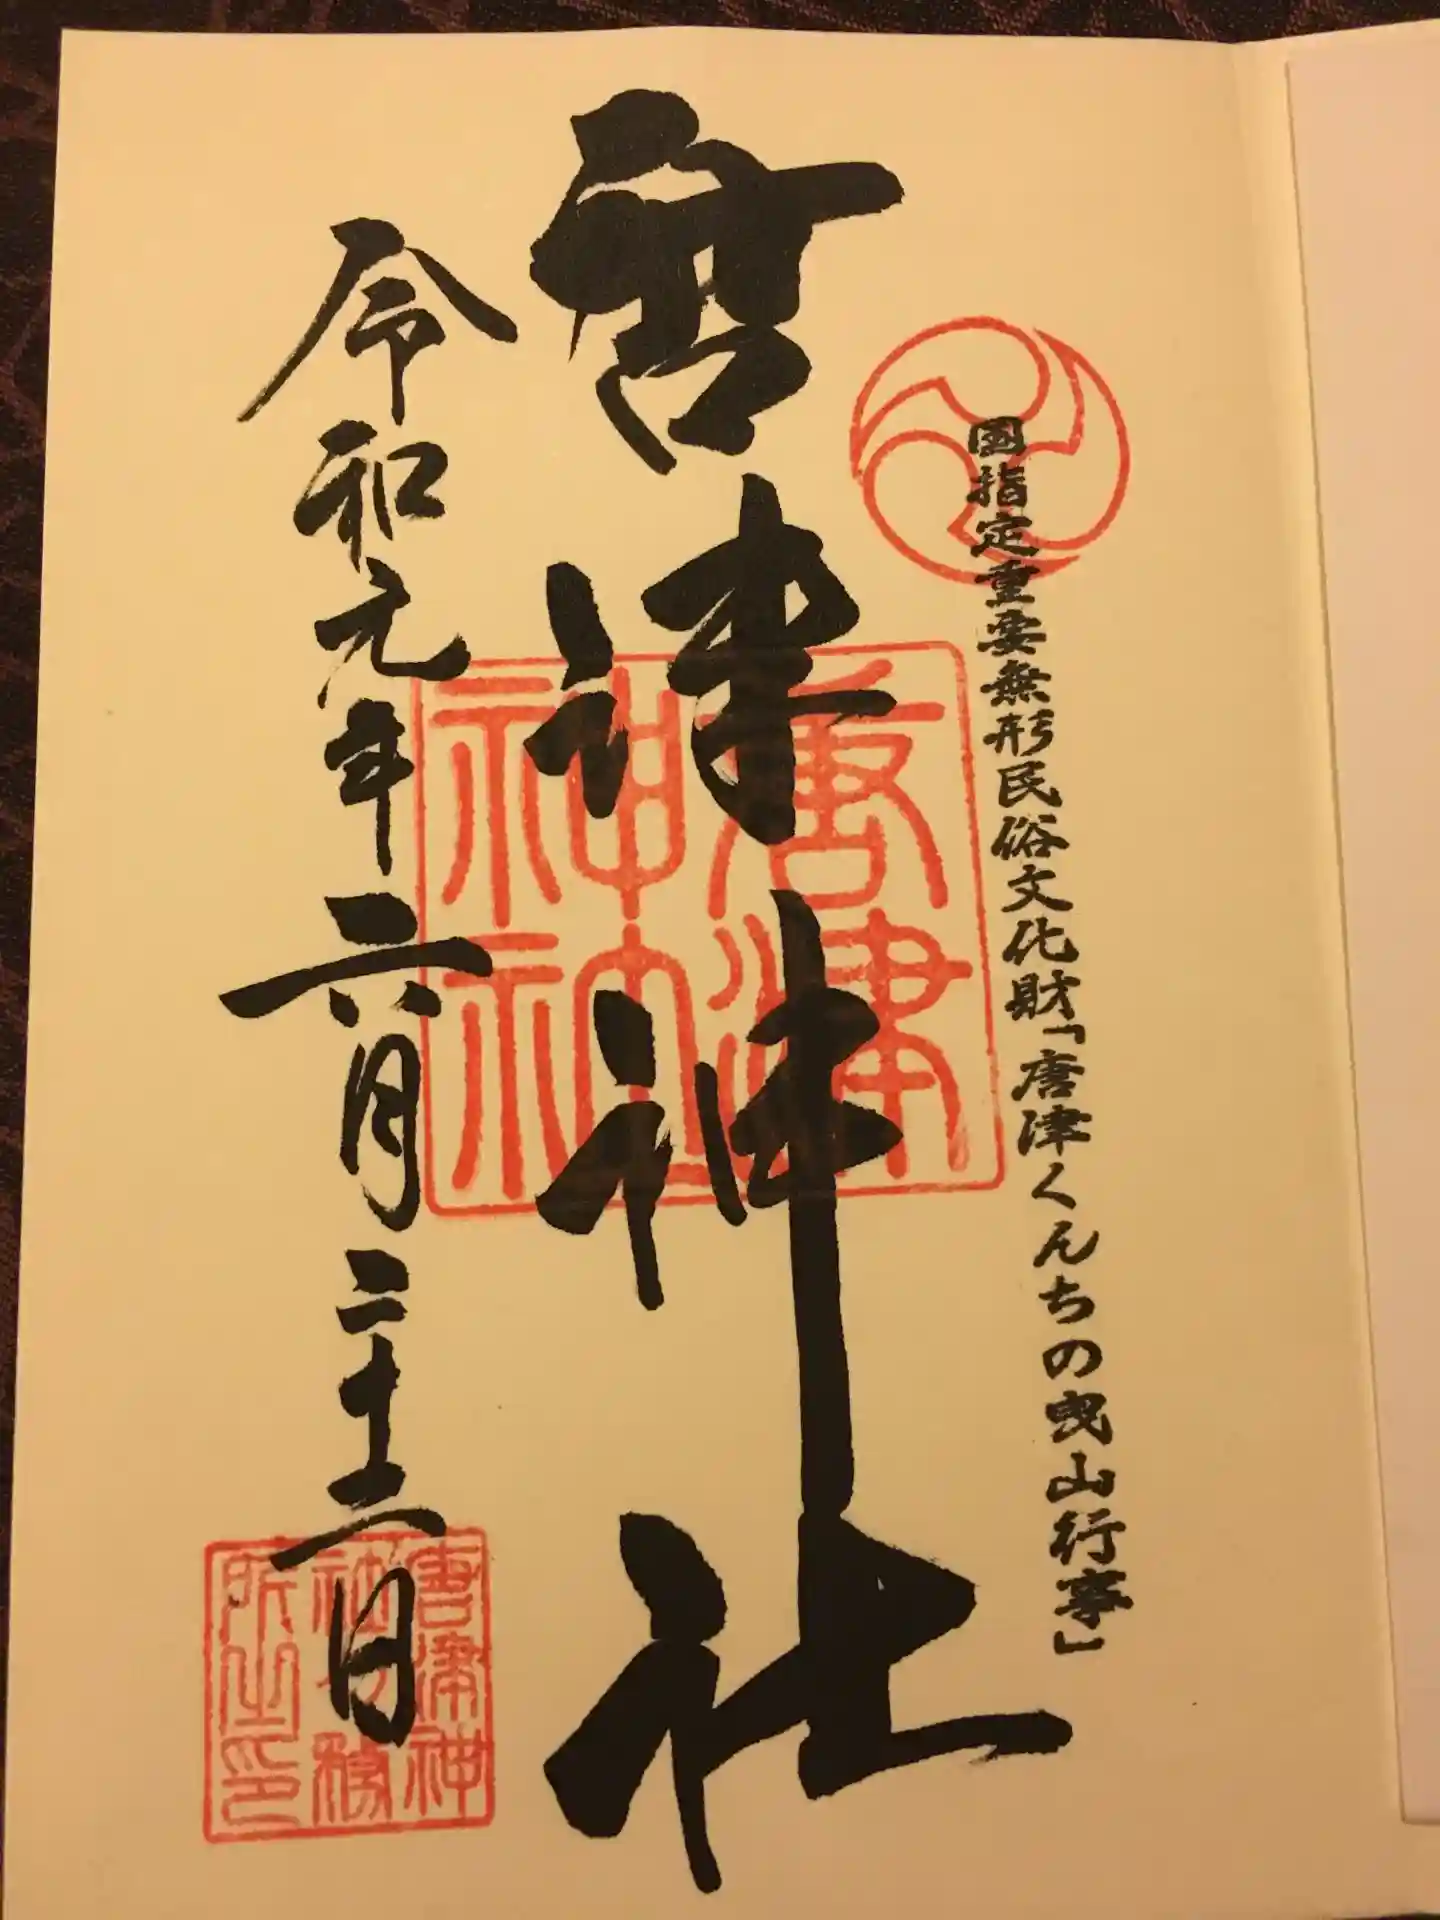 国指定重要無形民俗文化財「唐津くんちの曳山行事」
唐津神社
唐津神社
令和元年六月二十二日
唐津神
社務
所之印